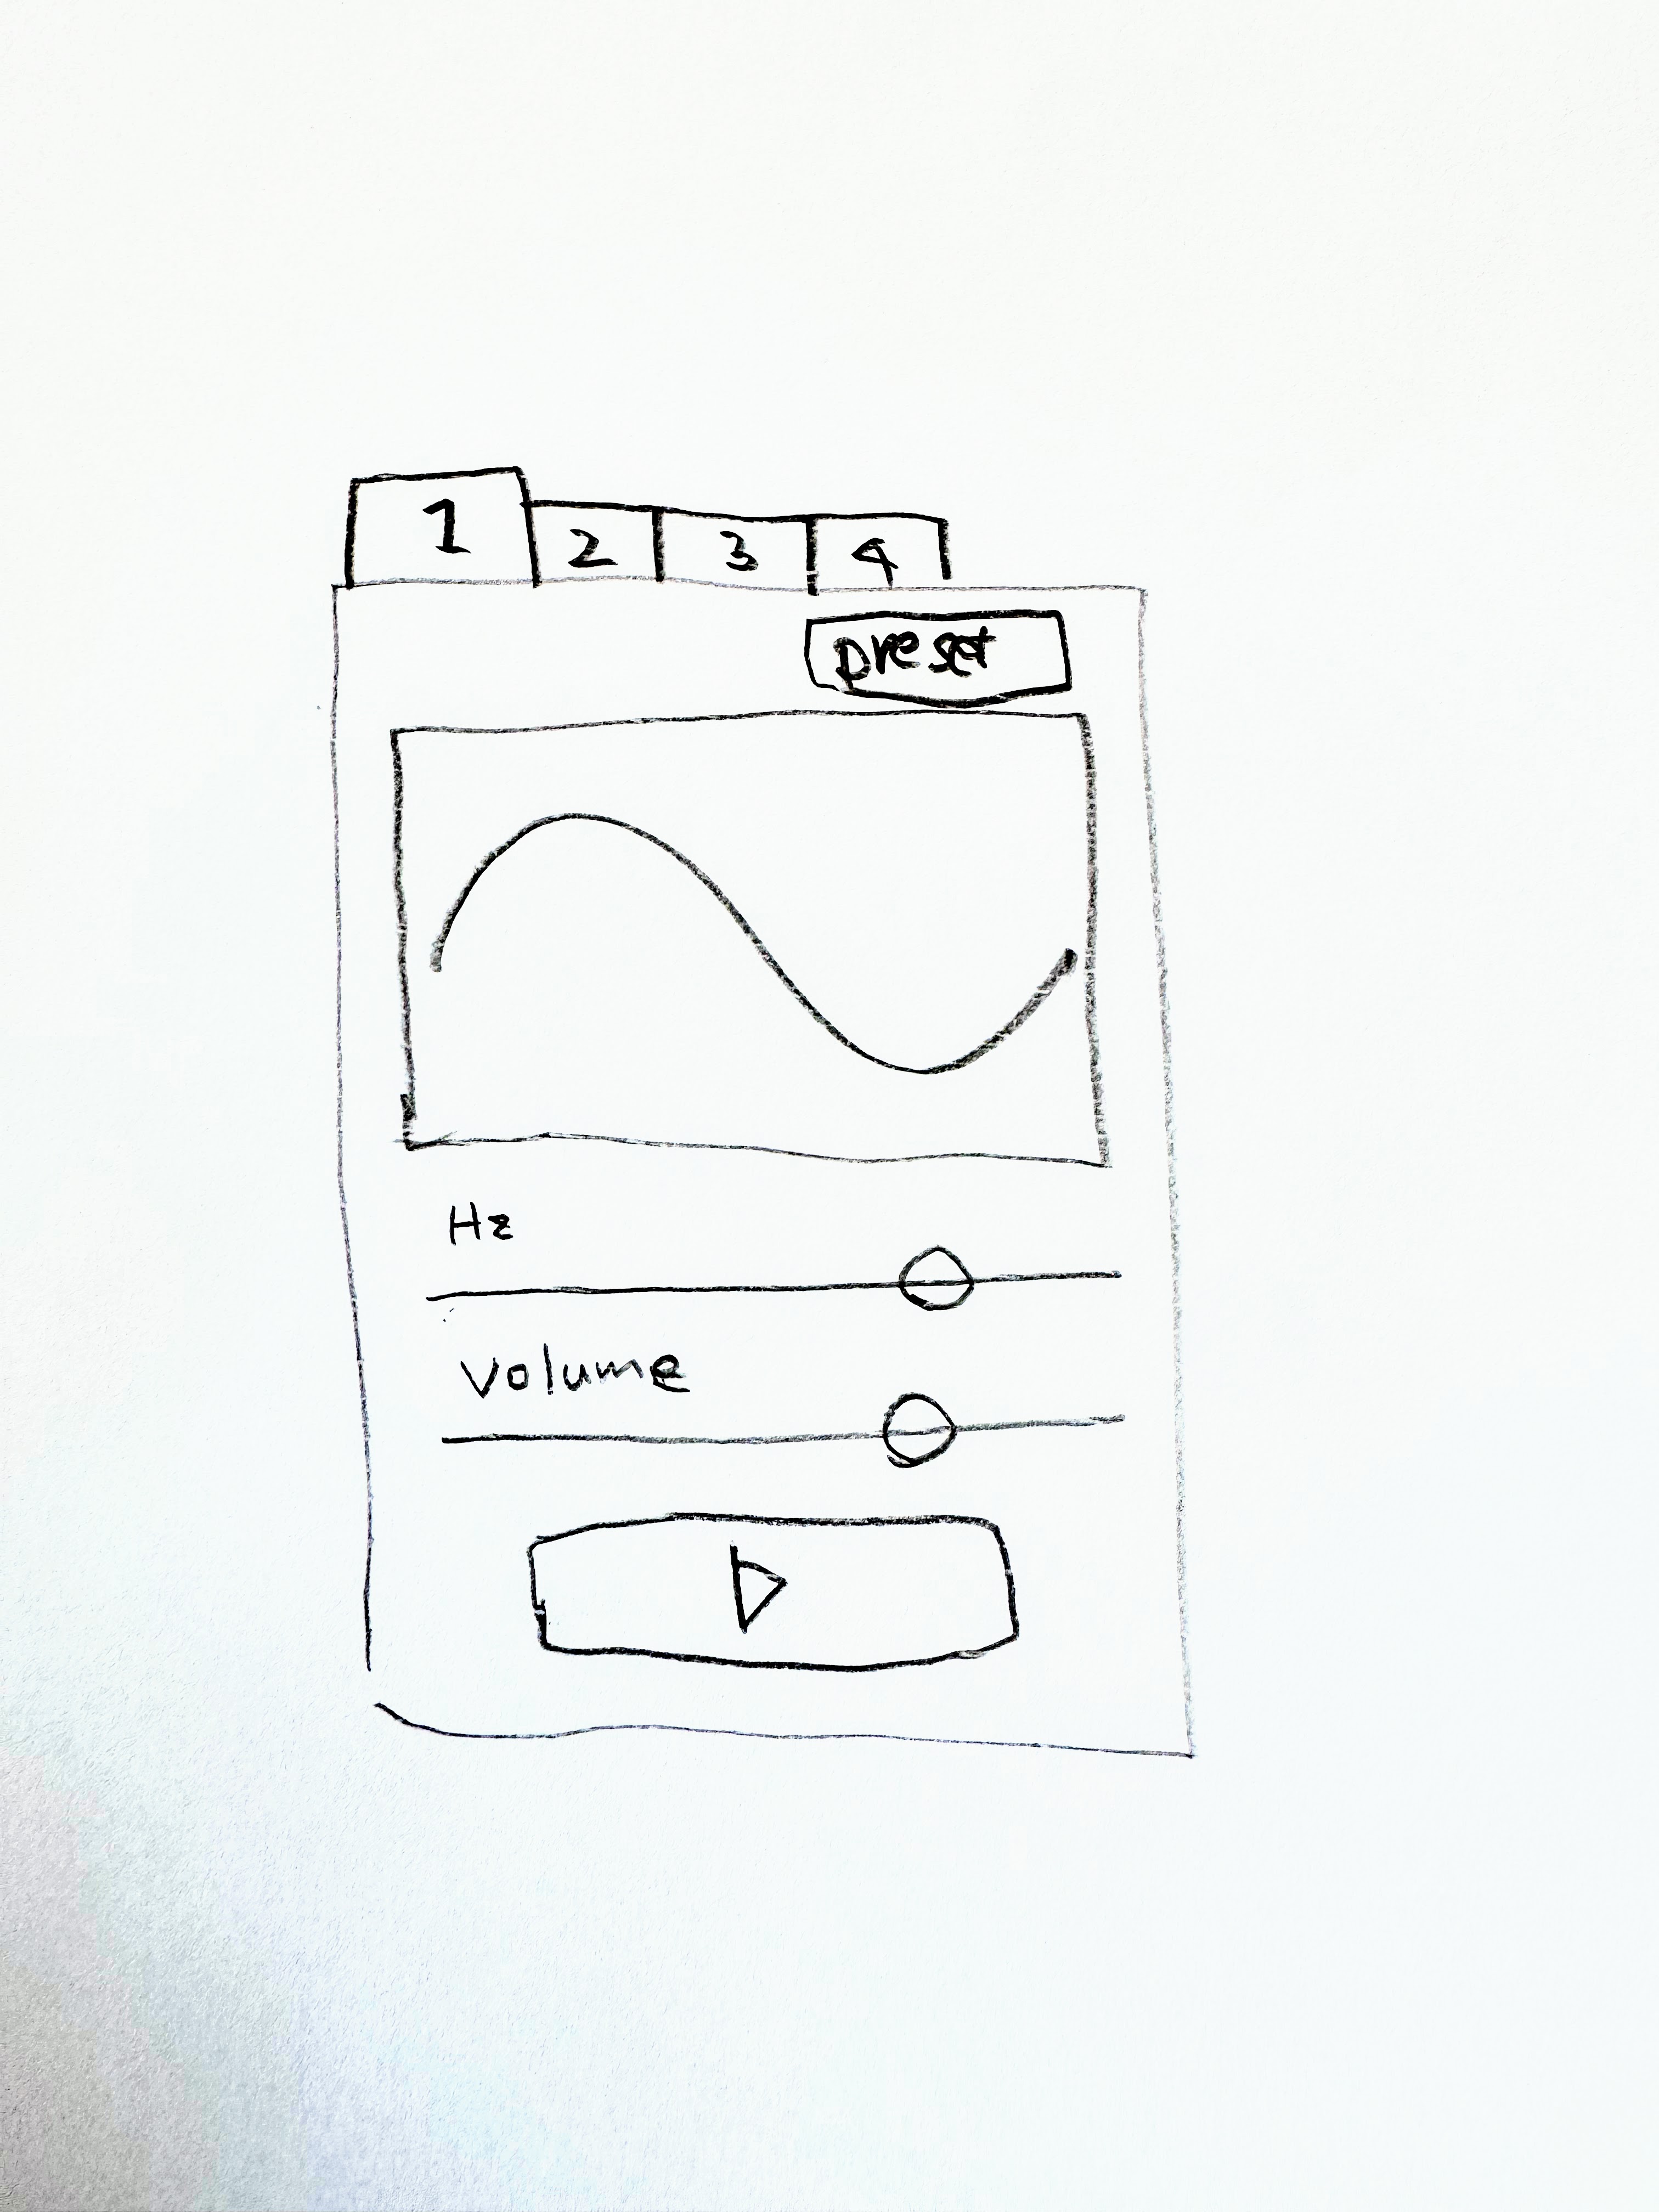 1 2 3 4
preset
Hz
Volume